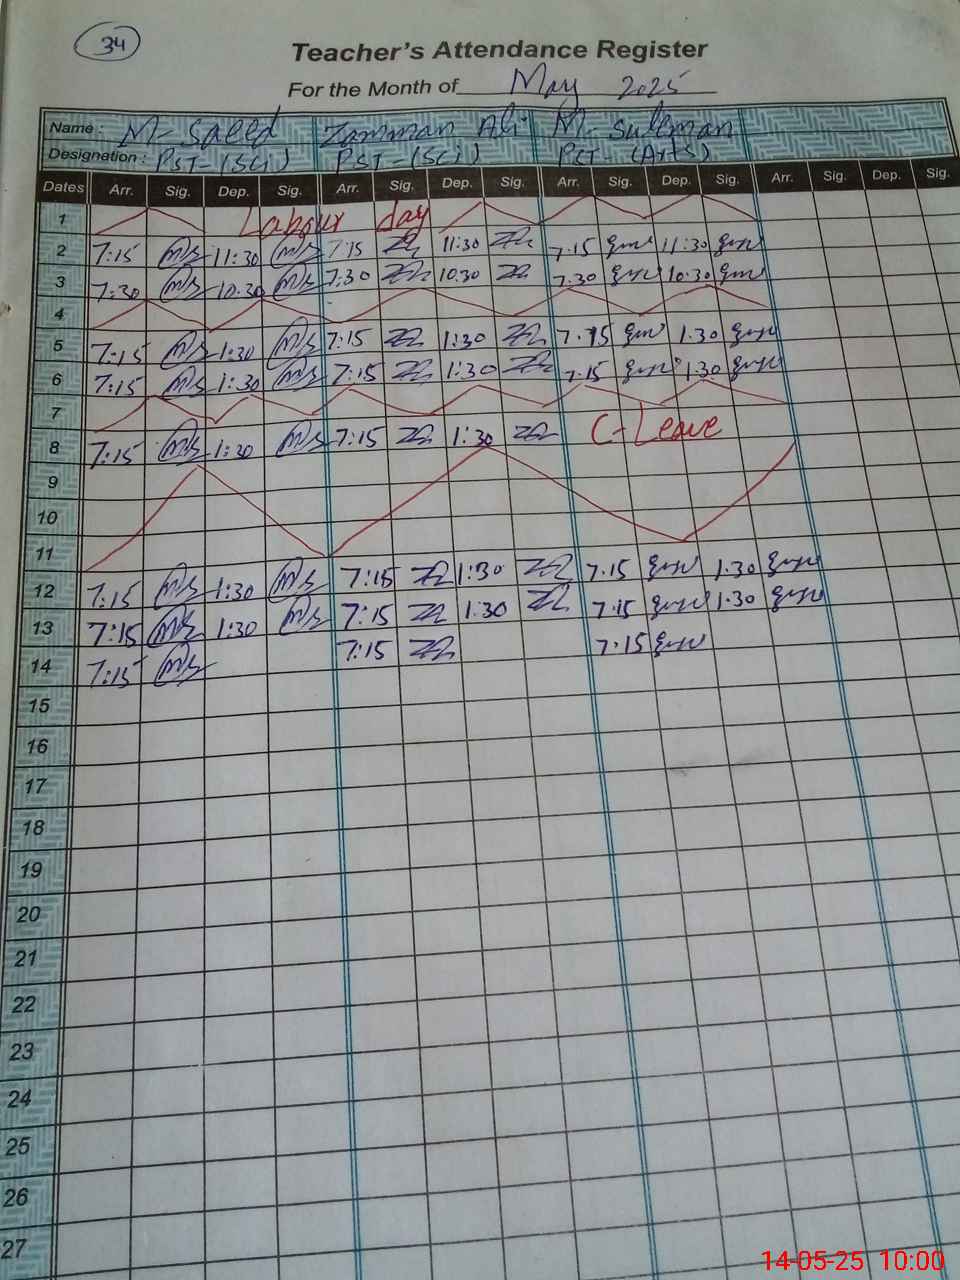 34
Teacher's Attendance Register
For the Month of May 2025
Name : M-Saeed Zamman Ali M-Suleman
Designation : PST-(Sci) PST-(Sci) PCT-(Arts)
Dates Arr. Sig. Dep. Sig. Arr. Sig. Dep. Sig. Arr. Sig. Dep. Sig. Arr. Sig. Dep. Sig.
1 Labour day
2 7:15 11:30 7:15 11:30 7.15 11:30
3 7:30 10.30 7:30 10.30 7.30 10.30
4
5 7:15 1:30 7:15 1:30 7.15 1.30
6 7:15 1:30 7:15 1:30 7.15 1.30
7
8 7:15 1:30 7:15 1:30 C-Leave
9
10
11
12 7:15 1:30 7:15 1:30 7.15 1.30
13 7:15 1:30 7:15 1:30 7.15 1.30
14 7:15 7:15 7.15
15
16
17
18
19
20
21
22
23
24
25
26
27
14-05-25 10:00